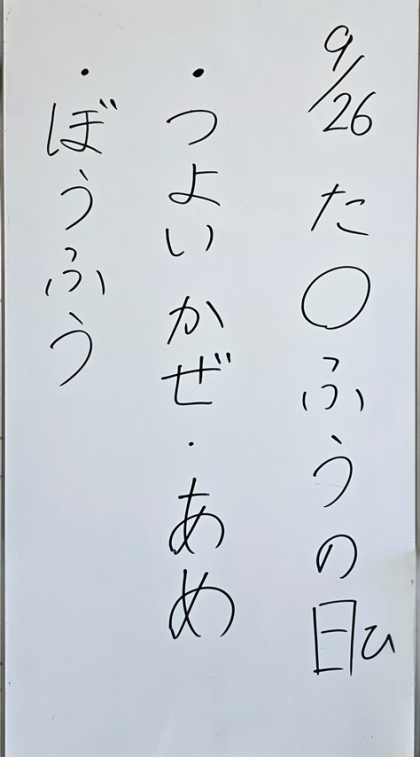 9/26 た○ふうの日ひ
・つよいかぜ・あめ
・ぼうふう